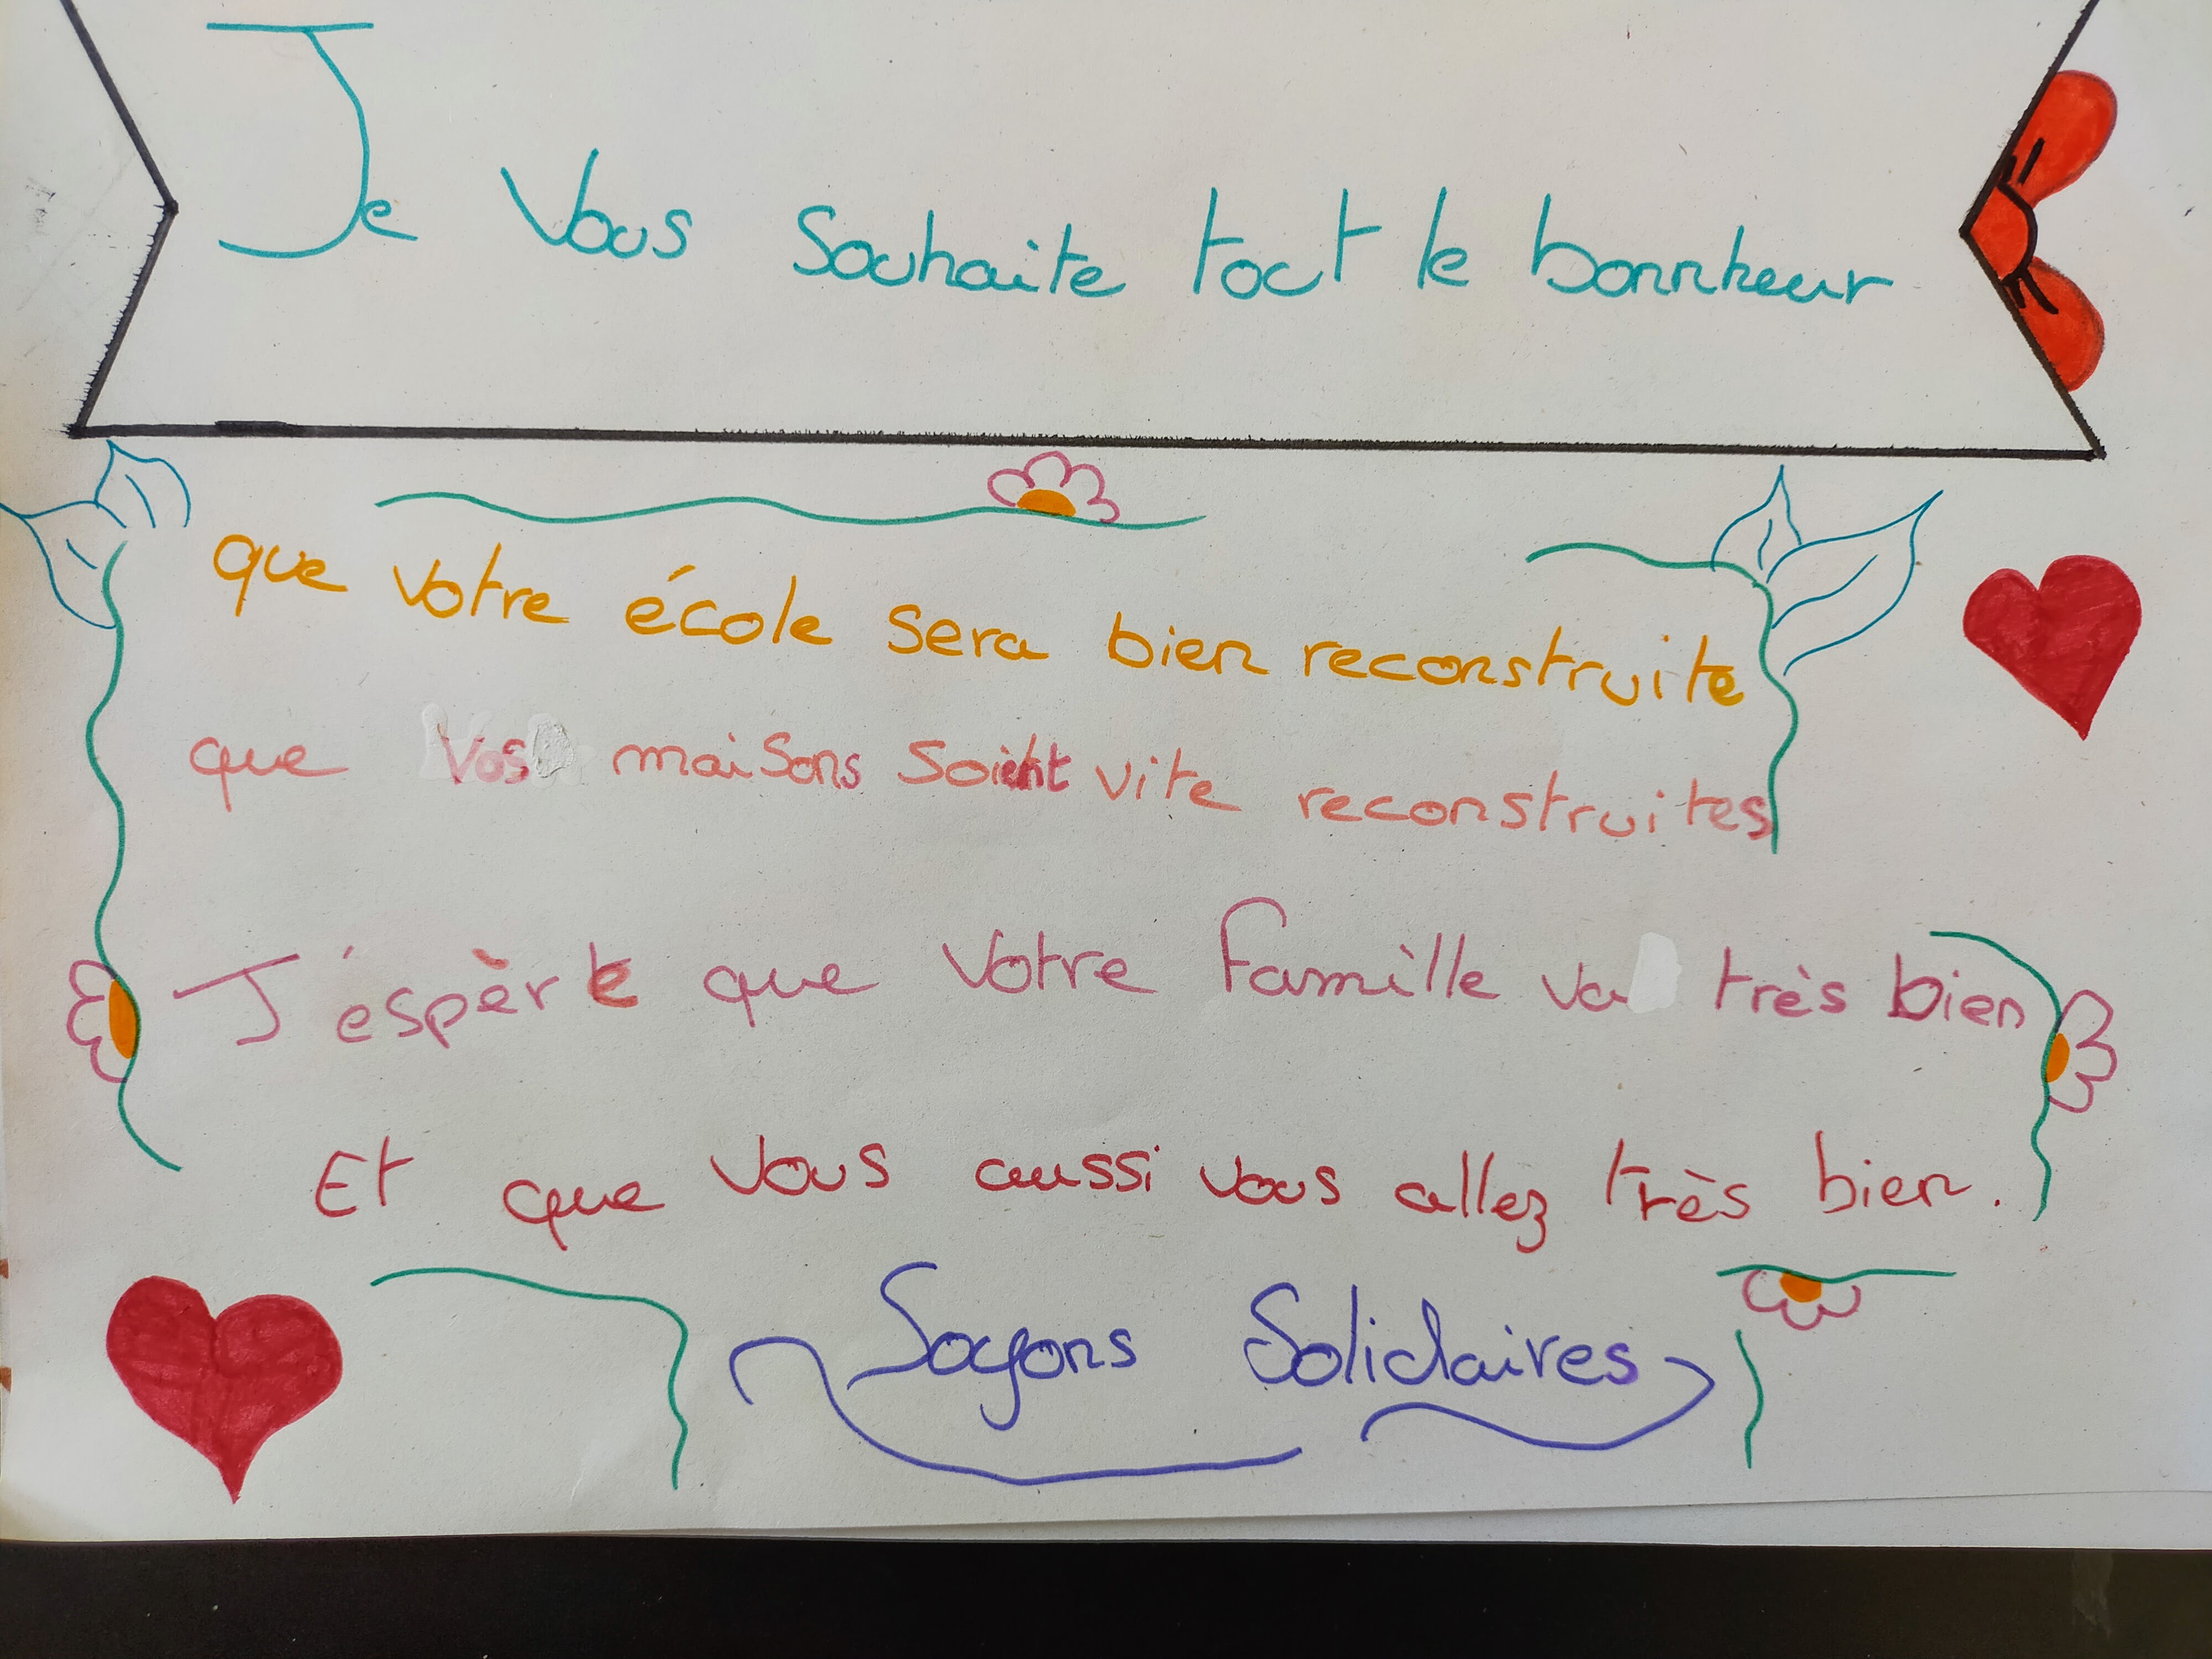 Je vous souhaite tout le bonnheur
que votre école sera bien reconstruite
que vos maisons soient vite reconstruites
J'éspère que votre famille va très bien
Et que vous aussi vous allez très bien.
Soyons Solidaires